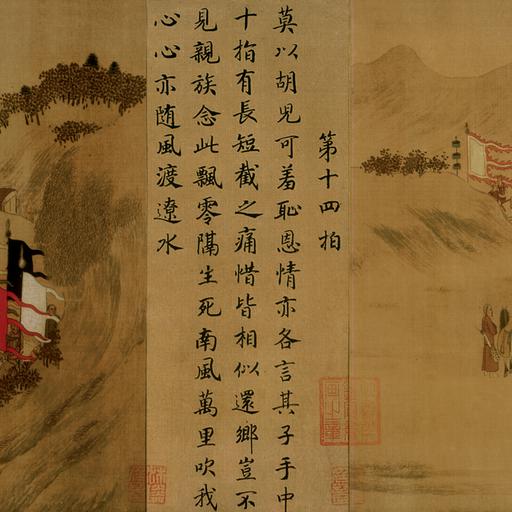 第十四拍
莫以胡兒可羞恥恩情亦各言其子手中
十指有長短截之痛惜皆相似還鄉豈不
見親族念此飄零隔生死南風萬里吹我
心心亦随風渡遼水